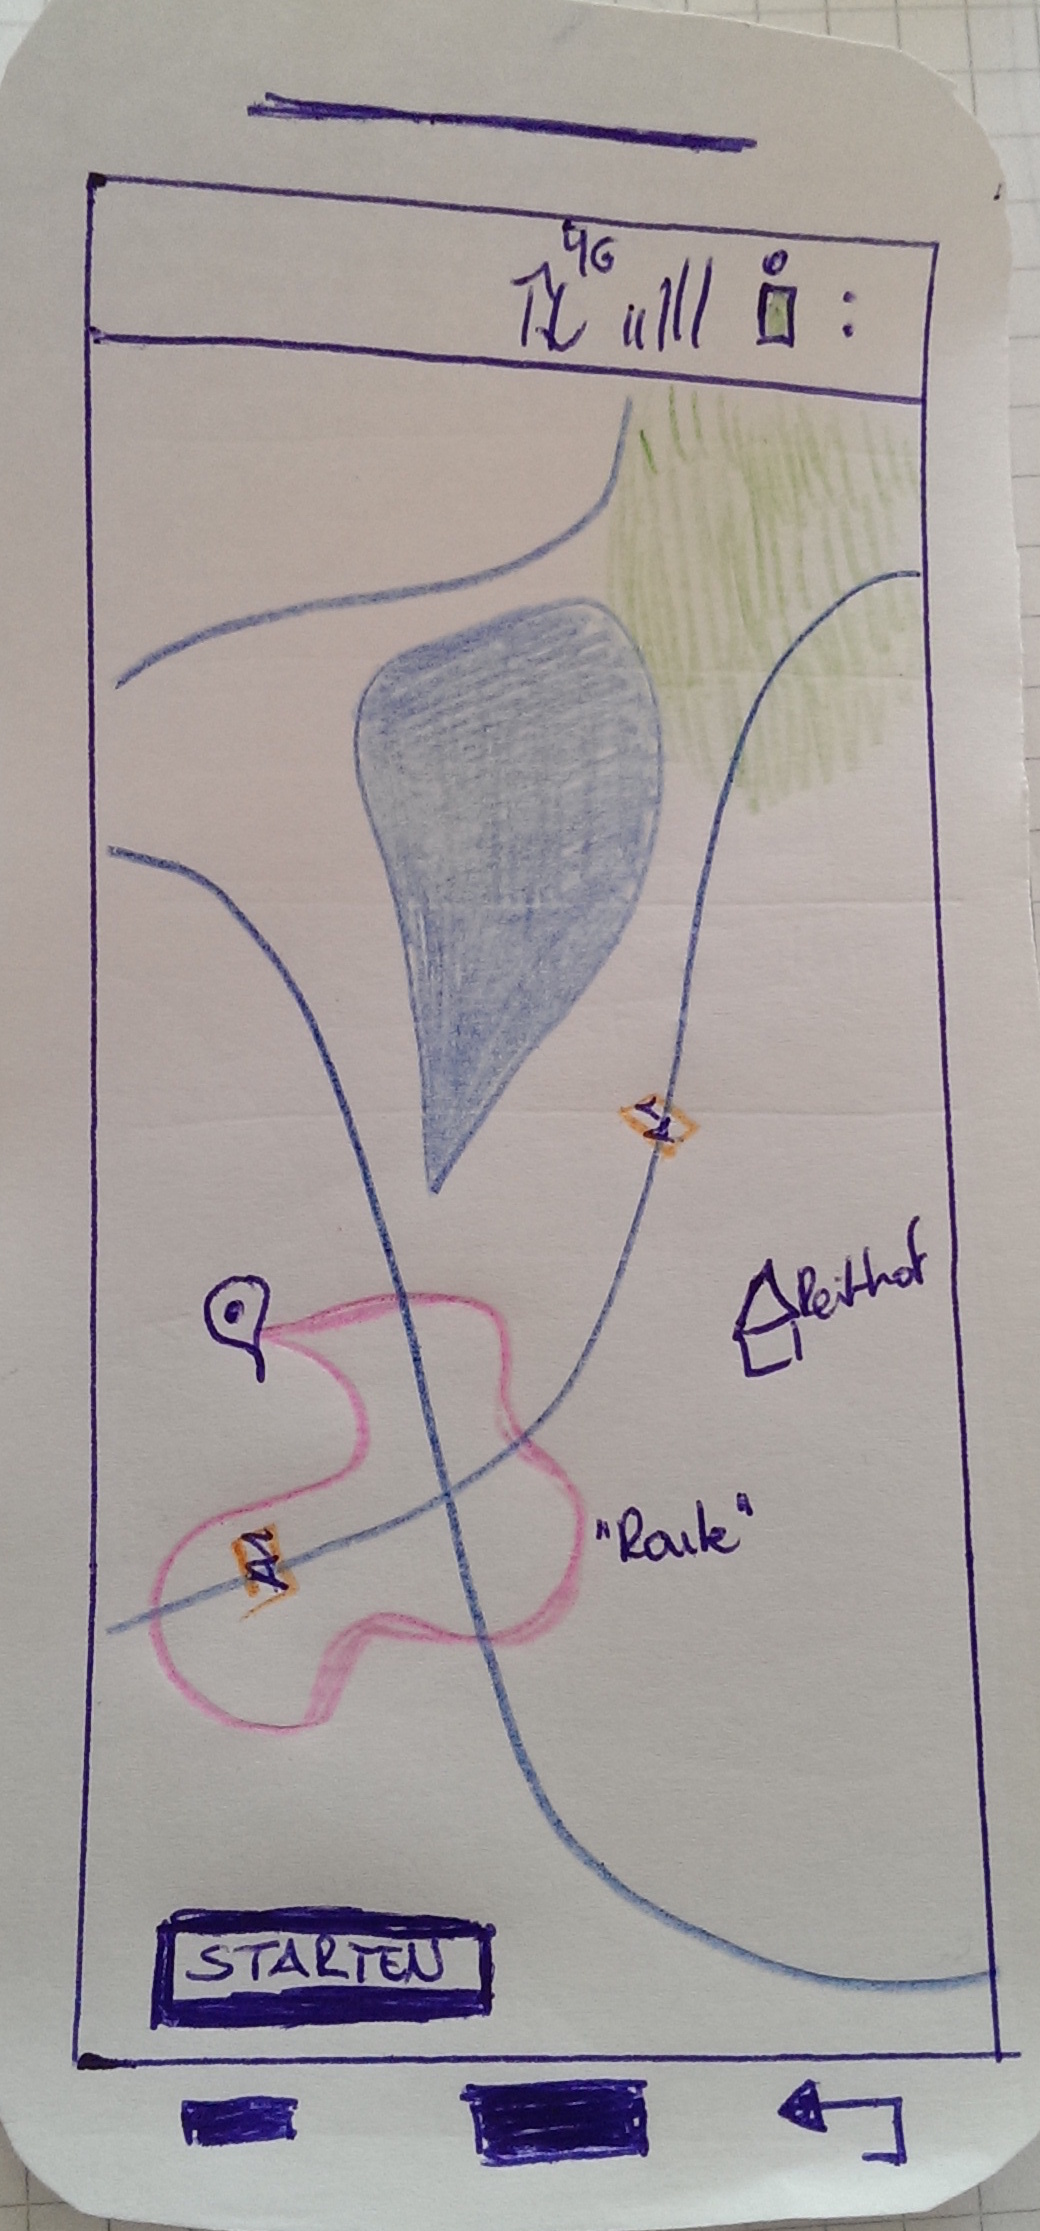 4G
Reithof
"Route"
STARTEN